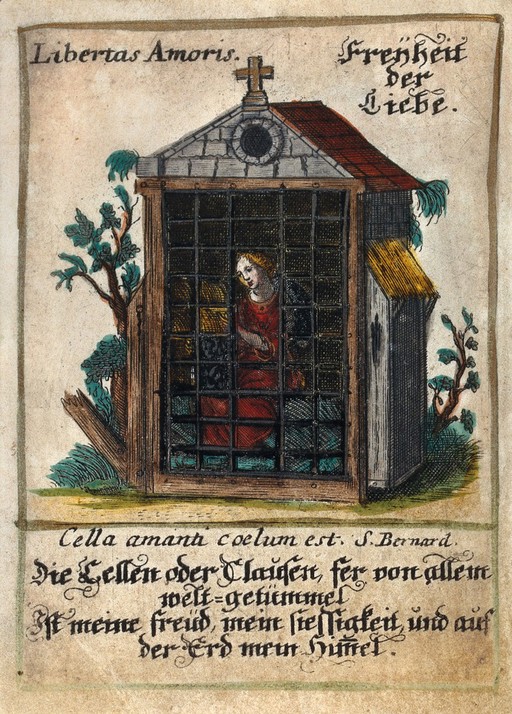 Libertas Amoris.
Freÿheit
der
Liebe.
Cella amanti coelum est. S. Bernard.
Die Cellen oder Clausen, fer von allem
welt=getümmel
Ist meine freüd, mein siessigkeit, und auf
der Erd mein Him̄el.